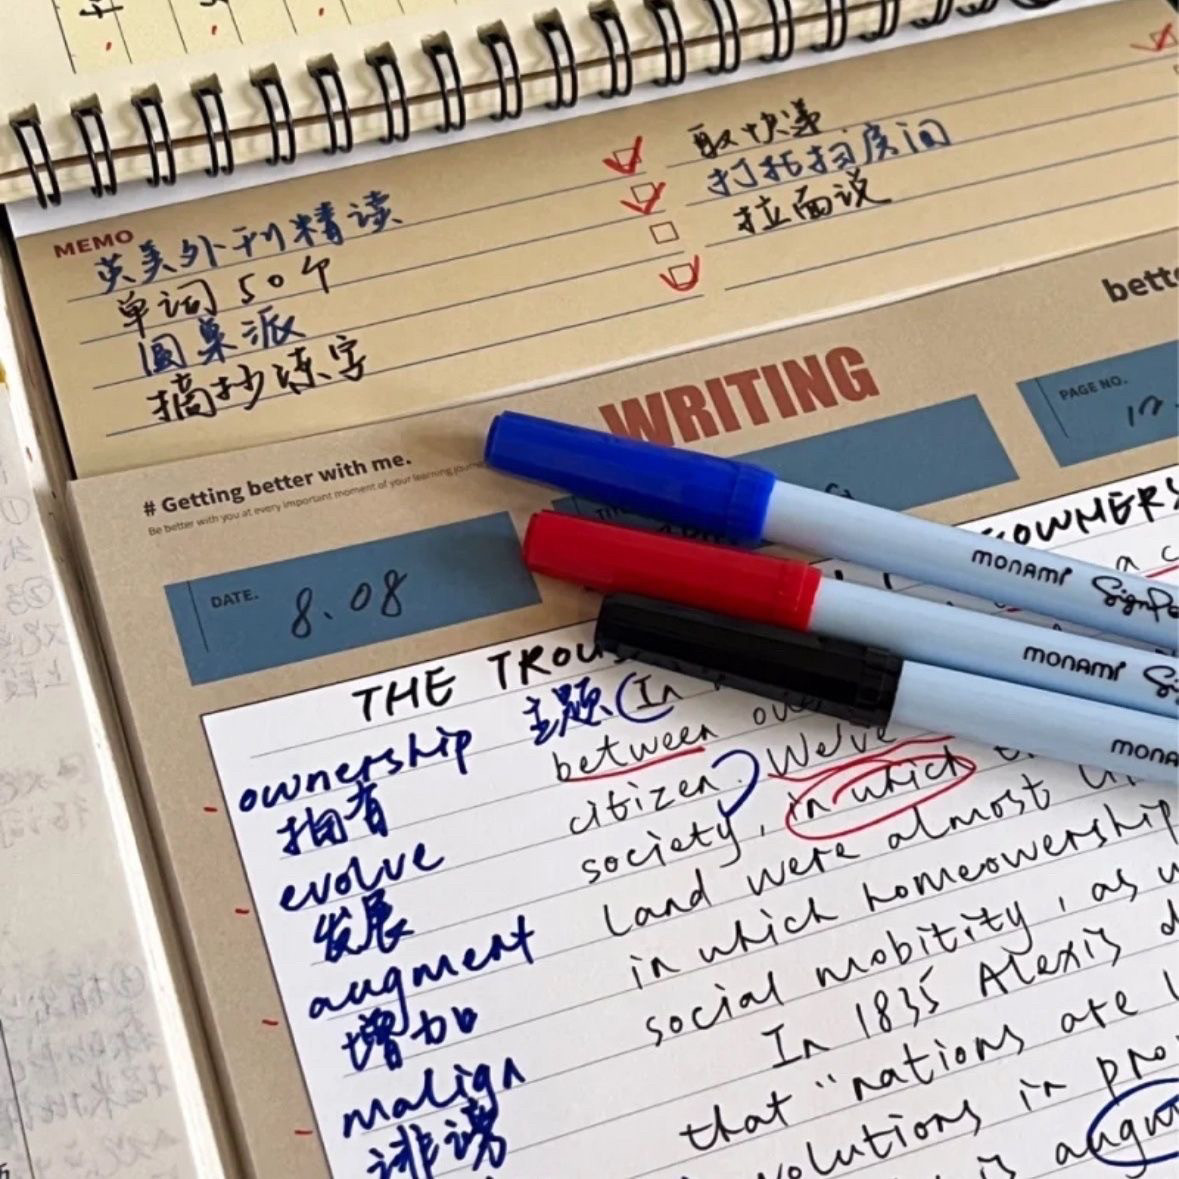 MEMO
英美外刊精读
单词50个
圆桌派
摘抄练字
取快递
打扫房间
拉面说
bette
WRITING
PAGE NO.
# Getting better with me.
Be better with you at every important moment of your learning journe
DATE.
8.08
THE TROU
OWNERS
a c
monami
monami
mona
ownership
拥有
evolve
发展
augment
增加
malign
诽谤
主题(In
between ou
citizen. We've
society, in which
land were almost
in which homeowership
social mobitity, as w
In 1835 Alexis d
that "nations are l
volutions in pro
is augm